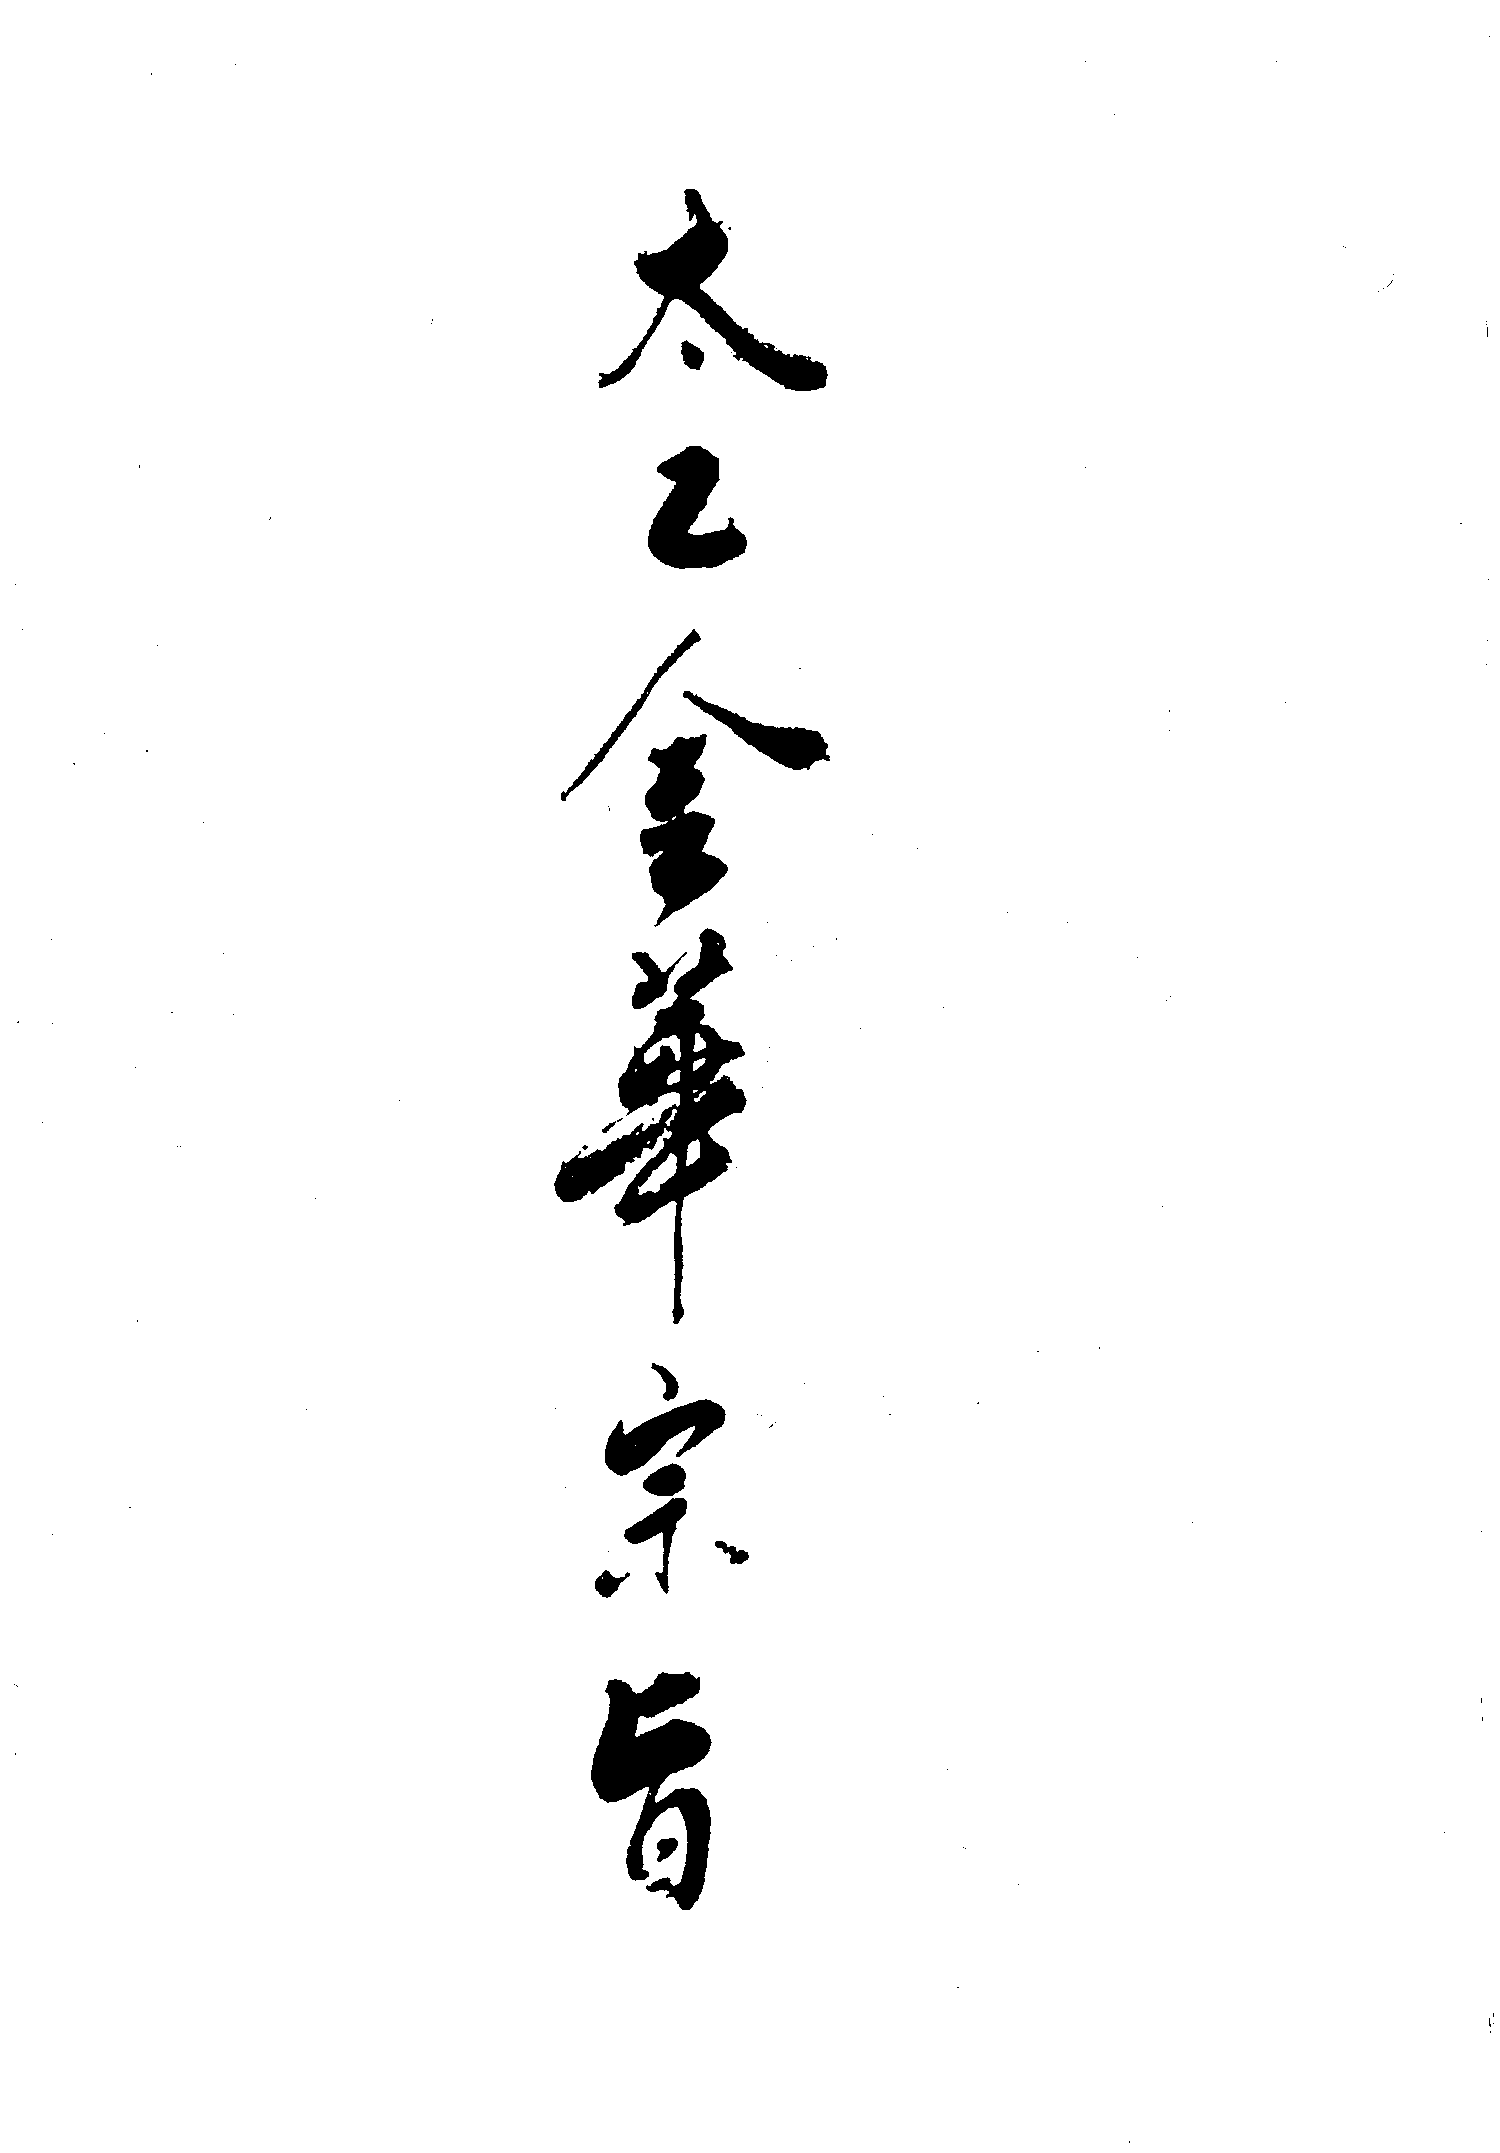 太乙金華宗旨